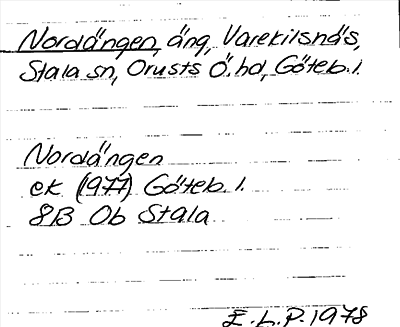 Nordängen, äng, Varekilsnäs,
Stala sn, Orusts Ö. hd, Göteb. l.
Nordängen
ek (1977) Göteb. l.
8B 0b Stala
E. L. P. 1978